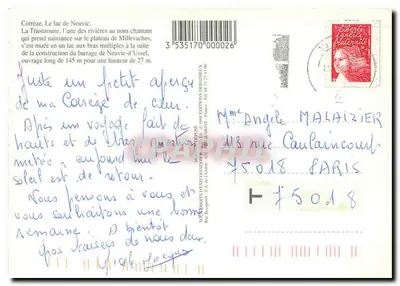 Corrèze. Le lac de Neuvic.
La Triouzoune, l'une des rivières au nom chantant
qui prend naissance sur le plateau de Millevaches,
s'est muée en un lac aux bras multiples à la suite
de la construction du barrage de Neuvic-d'Ussel,
ouvrage long de 145 m pour une hauteur de 27 m.
3 535170 000026
Juste un petit aperçu
de ma Corrèze de cœur.
Après un voyage fait de
hauts et de bas
météo, aujourd'hui le
soleil est de retour.
Nous pensons à vous et
vous souhaitons une bonne
semaine. A bientôt
gros baisers de nous deux.
Liberté
Égalité
Fraternité
Mme Angèle MALAIZIER
13 rue Caulaincourt
75018 PARIS
75018